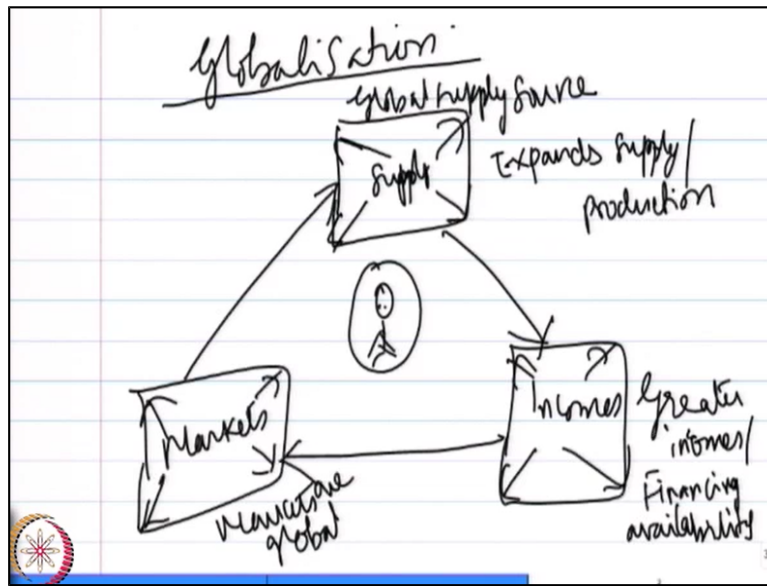 Globalisation
Global supply source
Supply
Expands supply/
production
Markets
Markets are
global
Incomes
Greater
incomes/
Financing
availability